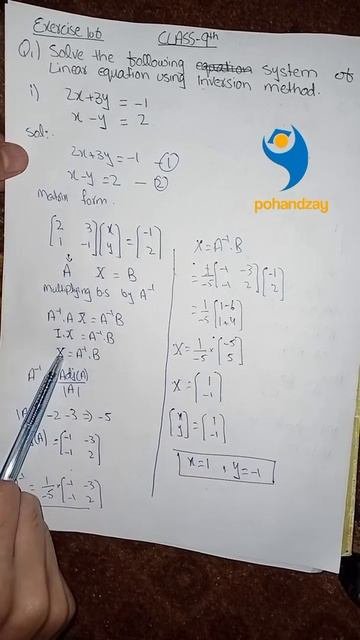 Exercise 1.6
CLASS-9th
Q.1) Solve the following system of
Linear equation using inversion method.
i) 2x+3y = -1
x - y = 2
Sol:.
2x+3y = -1 — ①
x-y = 2 — ②
Matrix form.
[2 3; 1 -1] [x; y] = [-1; 2]
A X = B
multiplying b.s by A⁻¹
A⁻¹.A X = A⁻¹B
I.X = A⁻¹.B
X = A⁻¹.B
A⁻¹ Adj(A)
|A|
-2 - 3 => -5
(A) = [-1 -3; -1 2]
= 1/-5 × [-1 -3; -1 2]
X = A⁻¹.B
= 1/-5 [-1 -3; -1 2] [-1; 2]
= 1/-5 [1-6; 1+4]
X = 1/-5 × [-5; 5]
X = [1; -1]
[x; y] = [1; -1]
x=1 , y=-1
pohandzay